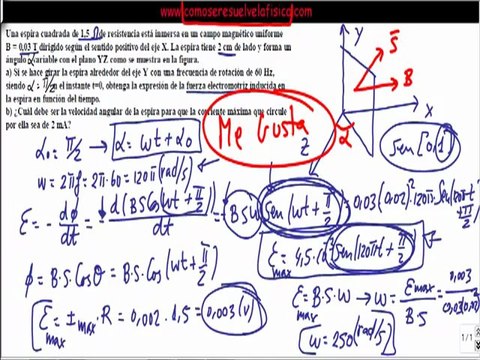 www.comoseresuelvelafisica.com
Una espira cuadrada de 1,5 Ω de resistencia está inmersa en un campo magnético uniforme
B = 0,03 T dirigido según el sentido positivo del eje X. La espira tiene 2 cm de lado y forma un
ángulo α variable con el plano YZ como se muestra en la figura.
a) Si se hace girar la espira alrededor del eje Y con una frecuencia de rotación de 60 Hz,
siendo α=π/2 en el instante t=0, obtenga la expresión de la fuerza electromotriz inducida en
la espira en función del tiempo.
b) ¿Cuál debe ser la velocidad angular de la espira para que la corriente máxima que circule
por ella sea de 2 mA?
Y
S
B
X
Z
α
Me Gusta
Sen[0,1]
α0 = π/2 → α = wt + α0
w = 2πf = 2π·60 = 120π (rad/s)
ε = -dφ/dt = - d(BSCos(wt+π/2))/dt = BSw Sen(wt+π/2) = 0,03(0,02)²·120π·Sen(120πt+π/2)
φ = B·S·Cosθ = B·S·Cos(wt+π/2)
Sen(120πt+π/2)
ε max = B·S·w → w = ε max / B·S = 0,003
ε max = I max · R = 0,002·1,5 = 0,003 (V)
w = 250 (rad/s)
1/1